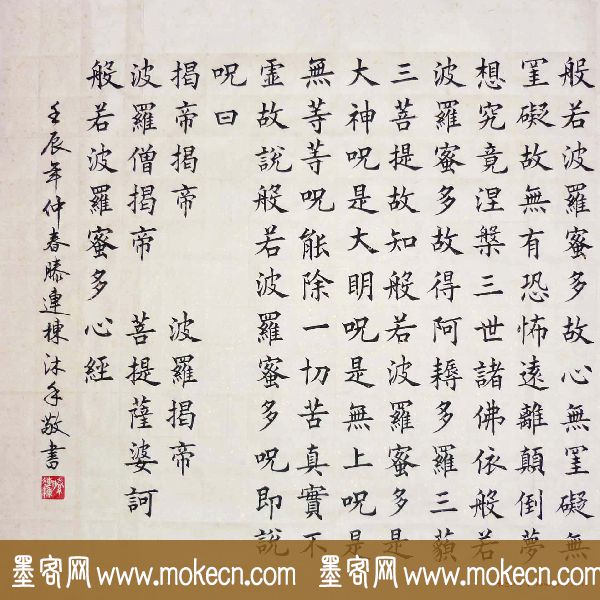 般若波羅蜜多故心無罣礙無
罣礙故無有恐怖遠離顛倒夢
想究竟涅槃三世諸佛依般若
波羅蜜多故得阿耨多羅三藐
三菩提故知般若波羅蜜多是
大神呪是大明呪是無上呪是
無等等呪能除一切苦真實不
虛故說般若波羅蜜多呪即說
呪曰
揭帝揭帝 波羅揭帝
波羅僧揭帝 菩提薩婆訶
般若波羅蜜多心經
壬辰年仲春滕連棟沐手敬書
墨客网 www.mokecn.com 墨客网 www.mokecn.com